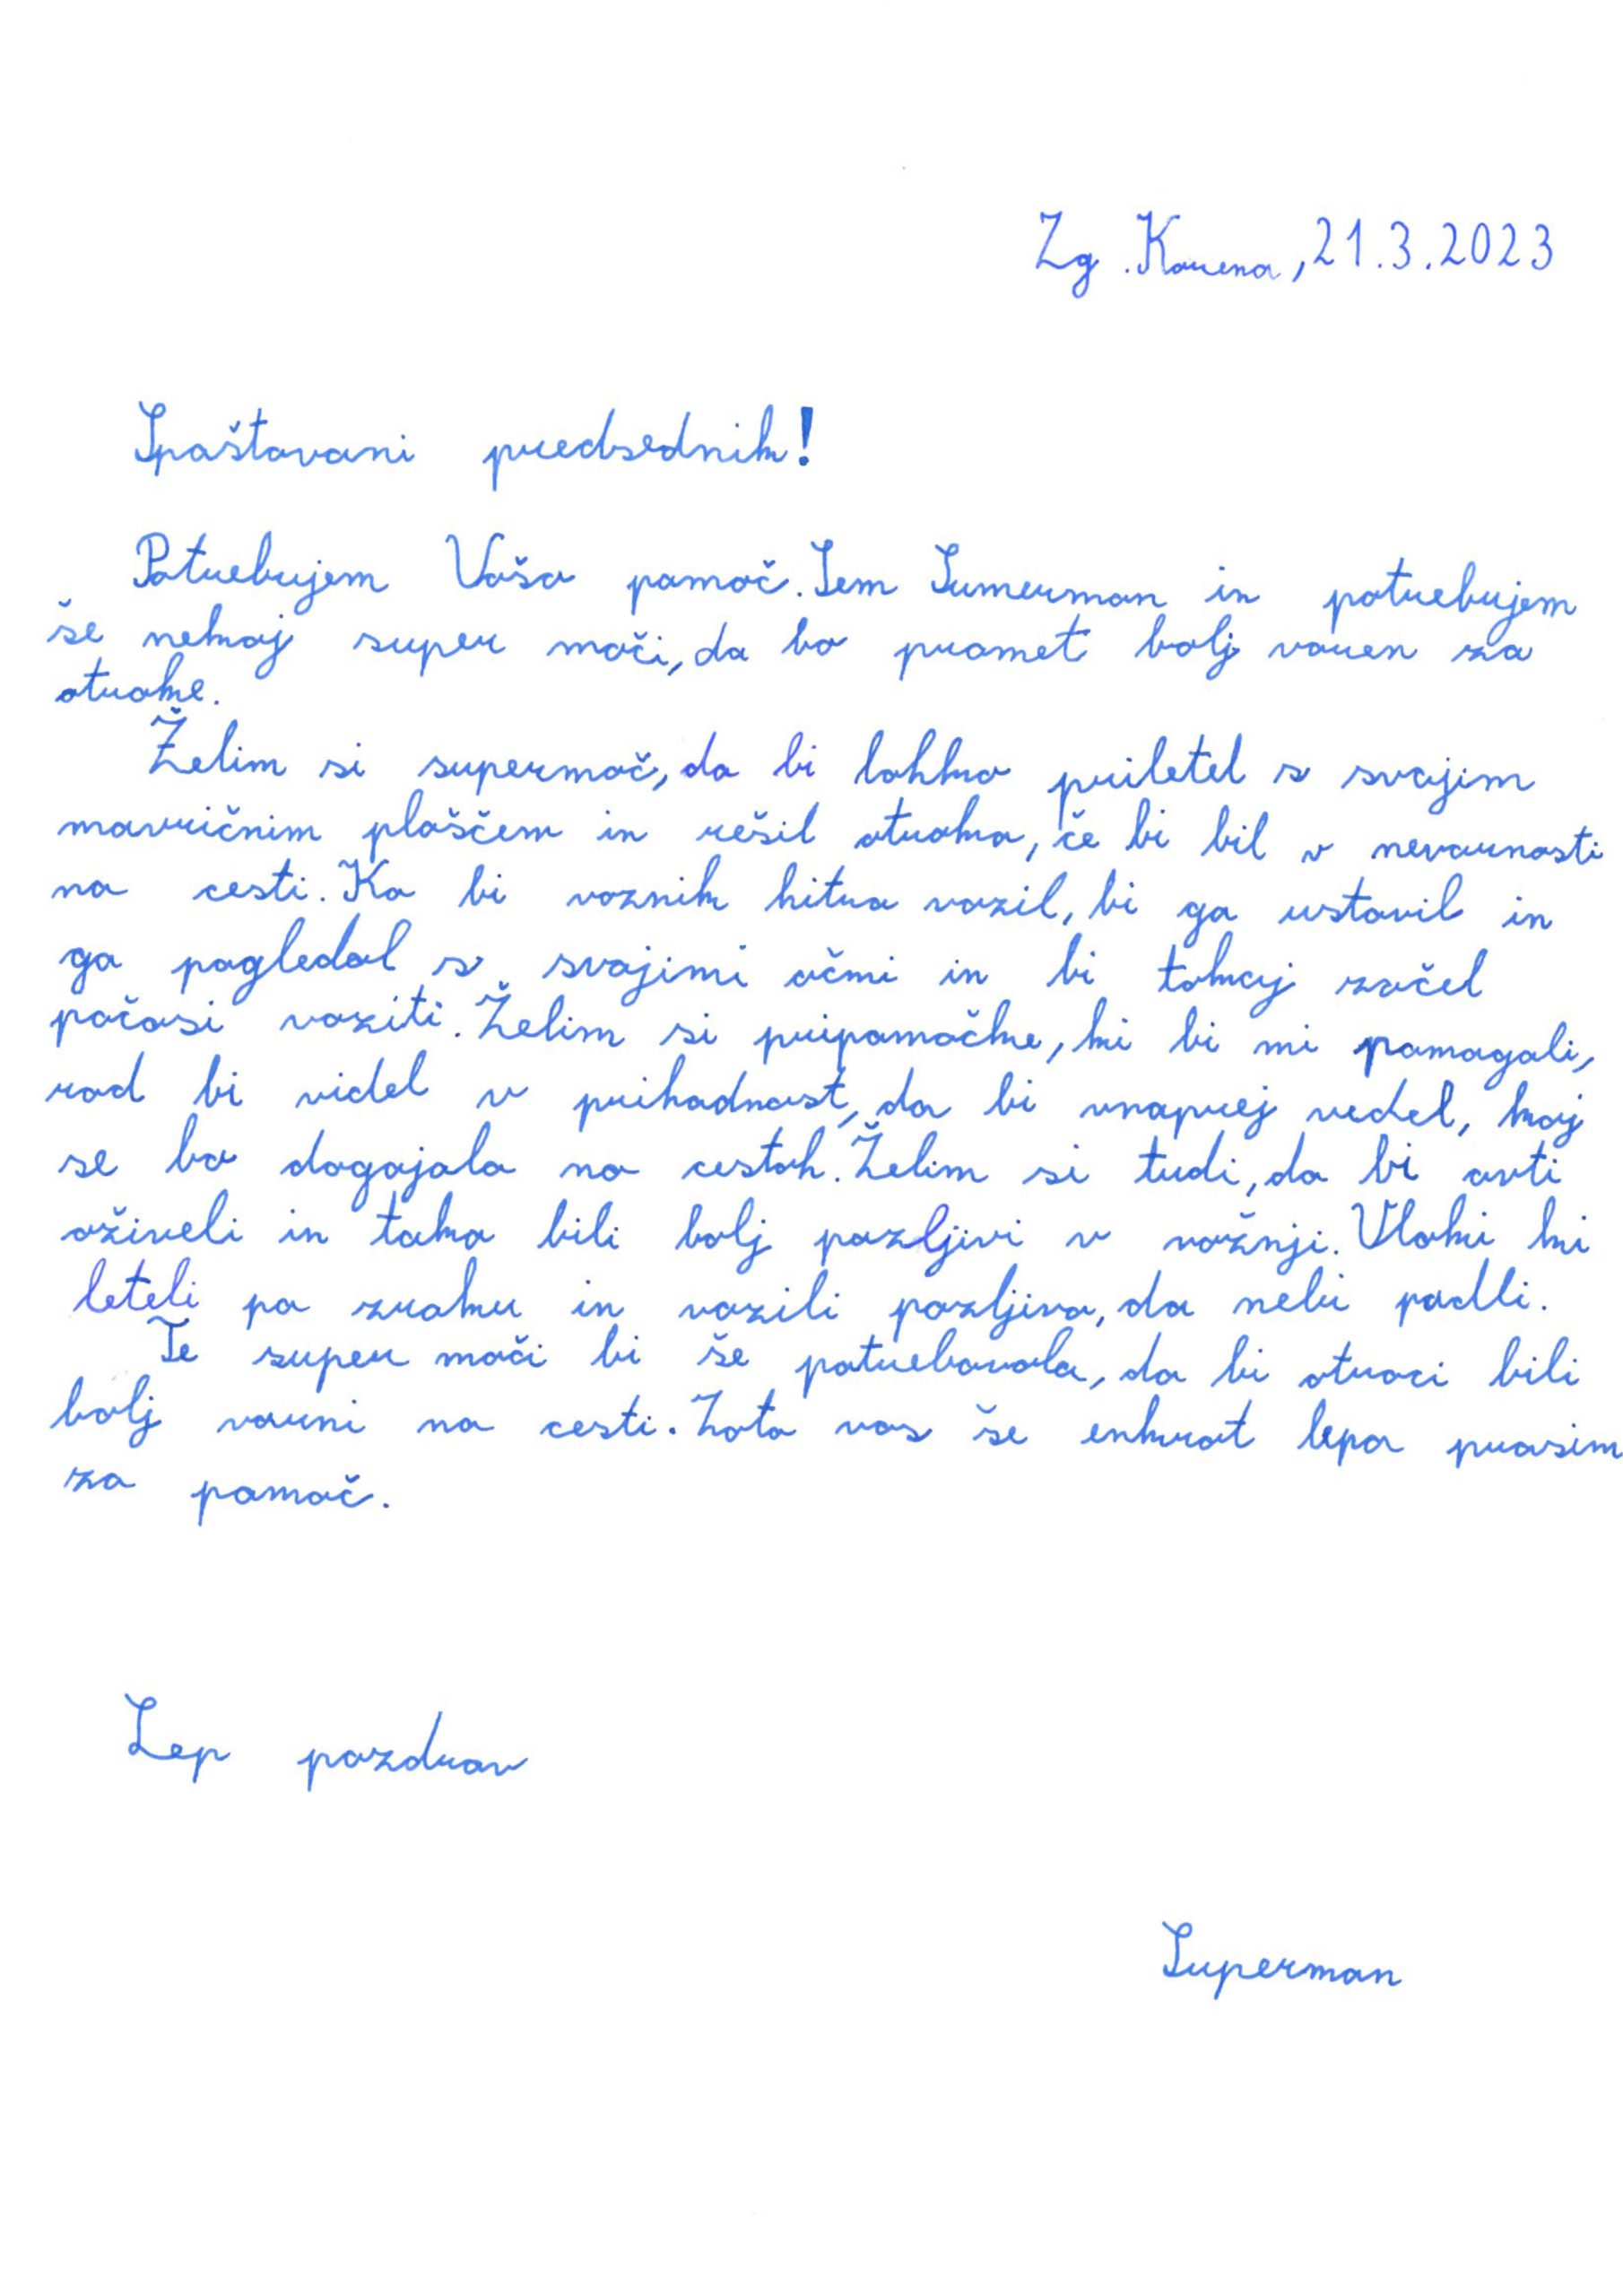 Zg. Korena, 21.3.2023
Spoštovani predsednik!
Potrebujem Vašo pomoč. Sem Sumerman in potrebujem
še nekaj super moči, da bo promet bolj varen za
otroke.
Želim si supermoč, da bi lahko priletel s svojim
mavričnim plaščem in rešil otroka, če bi bil v nevarnosti
na cesti. Ko bi voznik hitro vozil, bi ga ustavil in
ga pogledal s svojimi očmi in bi takoj začel
počasi voziti. Želim si pripomočke, ki bi mi pomagali,
rad bi videl v prihodnost, da bi vnaprej vedel, kaj
se bo dogajalo na cestah. Želim si tudi, da bi avti
oživeli in tako bili bolj pazljivi v vožnji. Vlaki bi
leteli po zraku in vozili pazljivo, da nebi padli.
Te super moči bi še potreboval, da bi otroci bili
bolj varni na cesti. Zato vas še enkrat lepo prosim
za pomoč.
Lep pozdrav
Superman